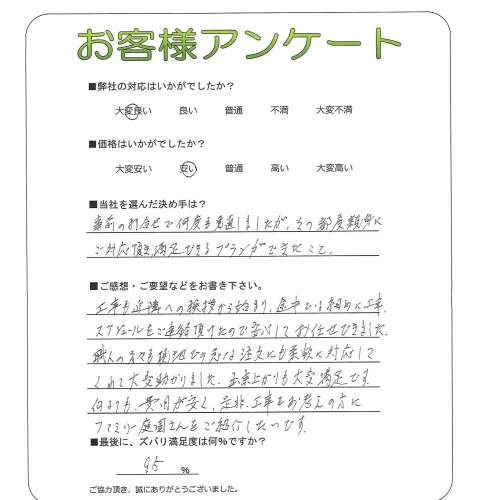 お客様アンケート
■弊社の対応はいかがでしたか?
大変良い 良い 普通 不満 大変不満
■価格はいかがでしたか?
大変安い 安い 普通 高い 大変高い
■当社を選んだ決め手は?
事前の打合せで何度も見直しましたが、その都度親身に
ご対応頂き満足できるプランができたこと。
■ご感想・ご要望などをお書き下さい。
工事も近隣への挨拶から始まり、途中では細めに工事
スケジュールをご連絡頂けたので安心してお任せできました。
職人の方々も現地での急な注文にも柔軟に対応して
くれて大変助かりました。出来上がりも大変満足です。
何よりも、費用が安く、是非、工事をお考えの方に
ファミリー庭園さんをご紹介したいです。
■最後に、ズバリ満足度は何%ですか?
95 %
ご協力頂き、誠にありがとうございました。